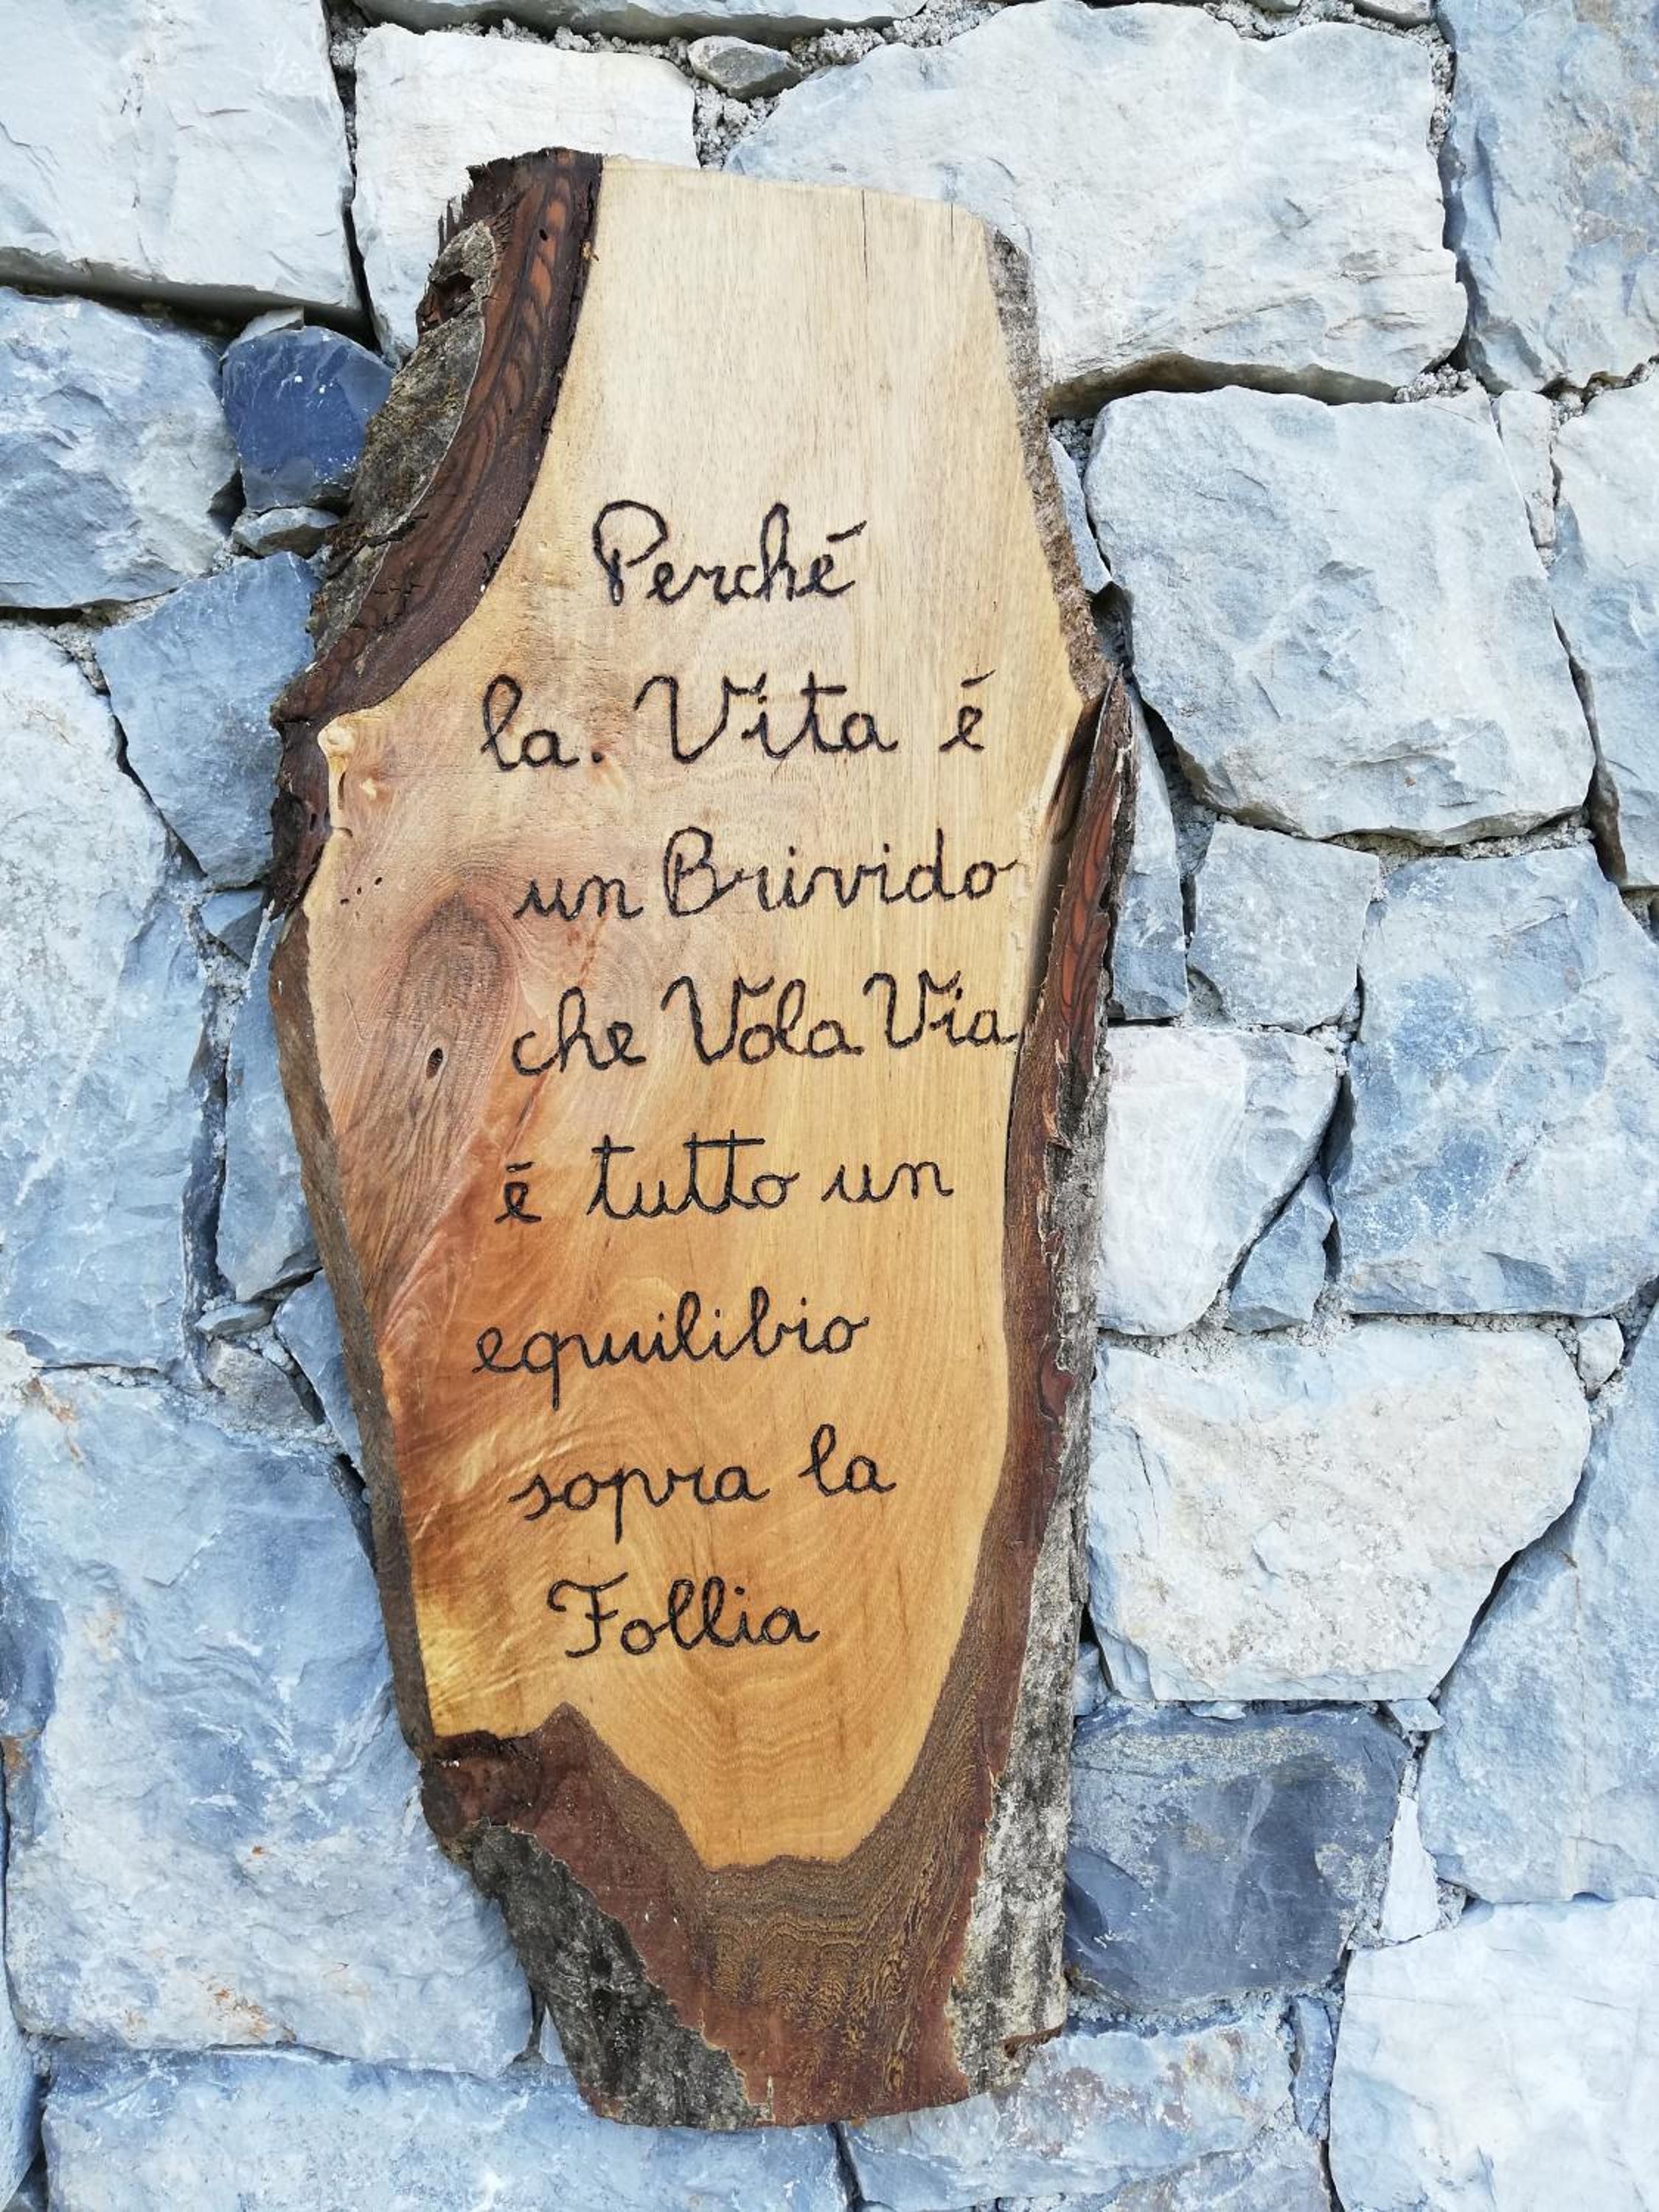 Perché
la. Vita é
un Brivido
che Vola Via
é tutto un
equilibrio
sopra la
Follia